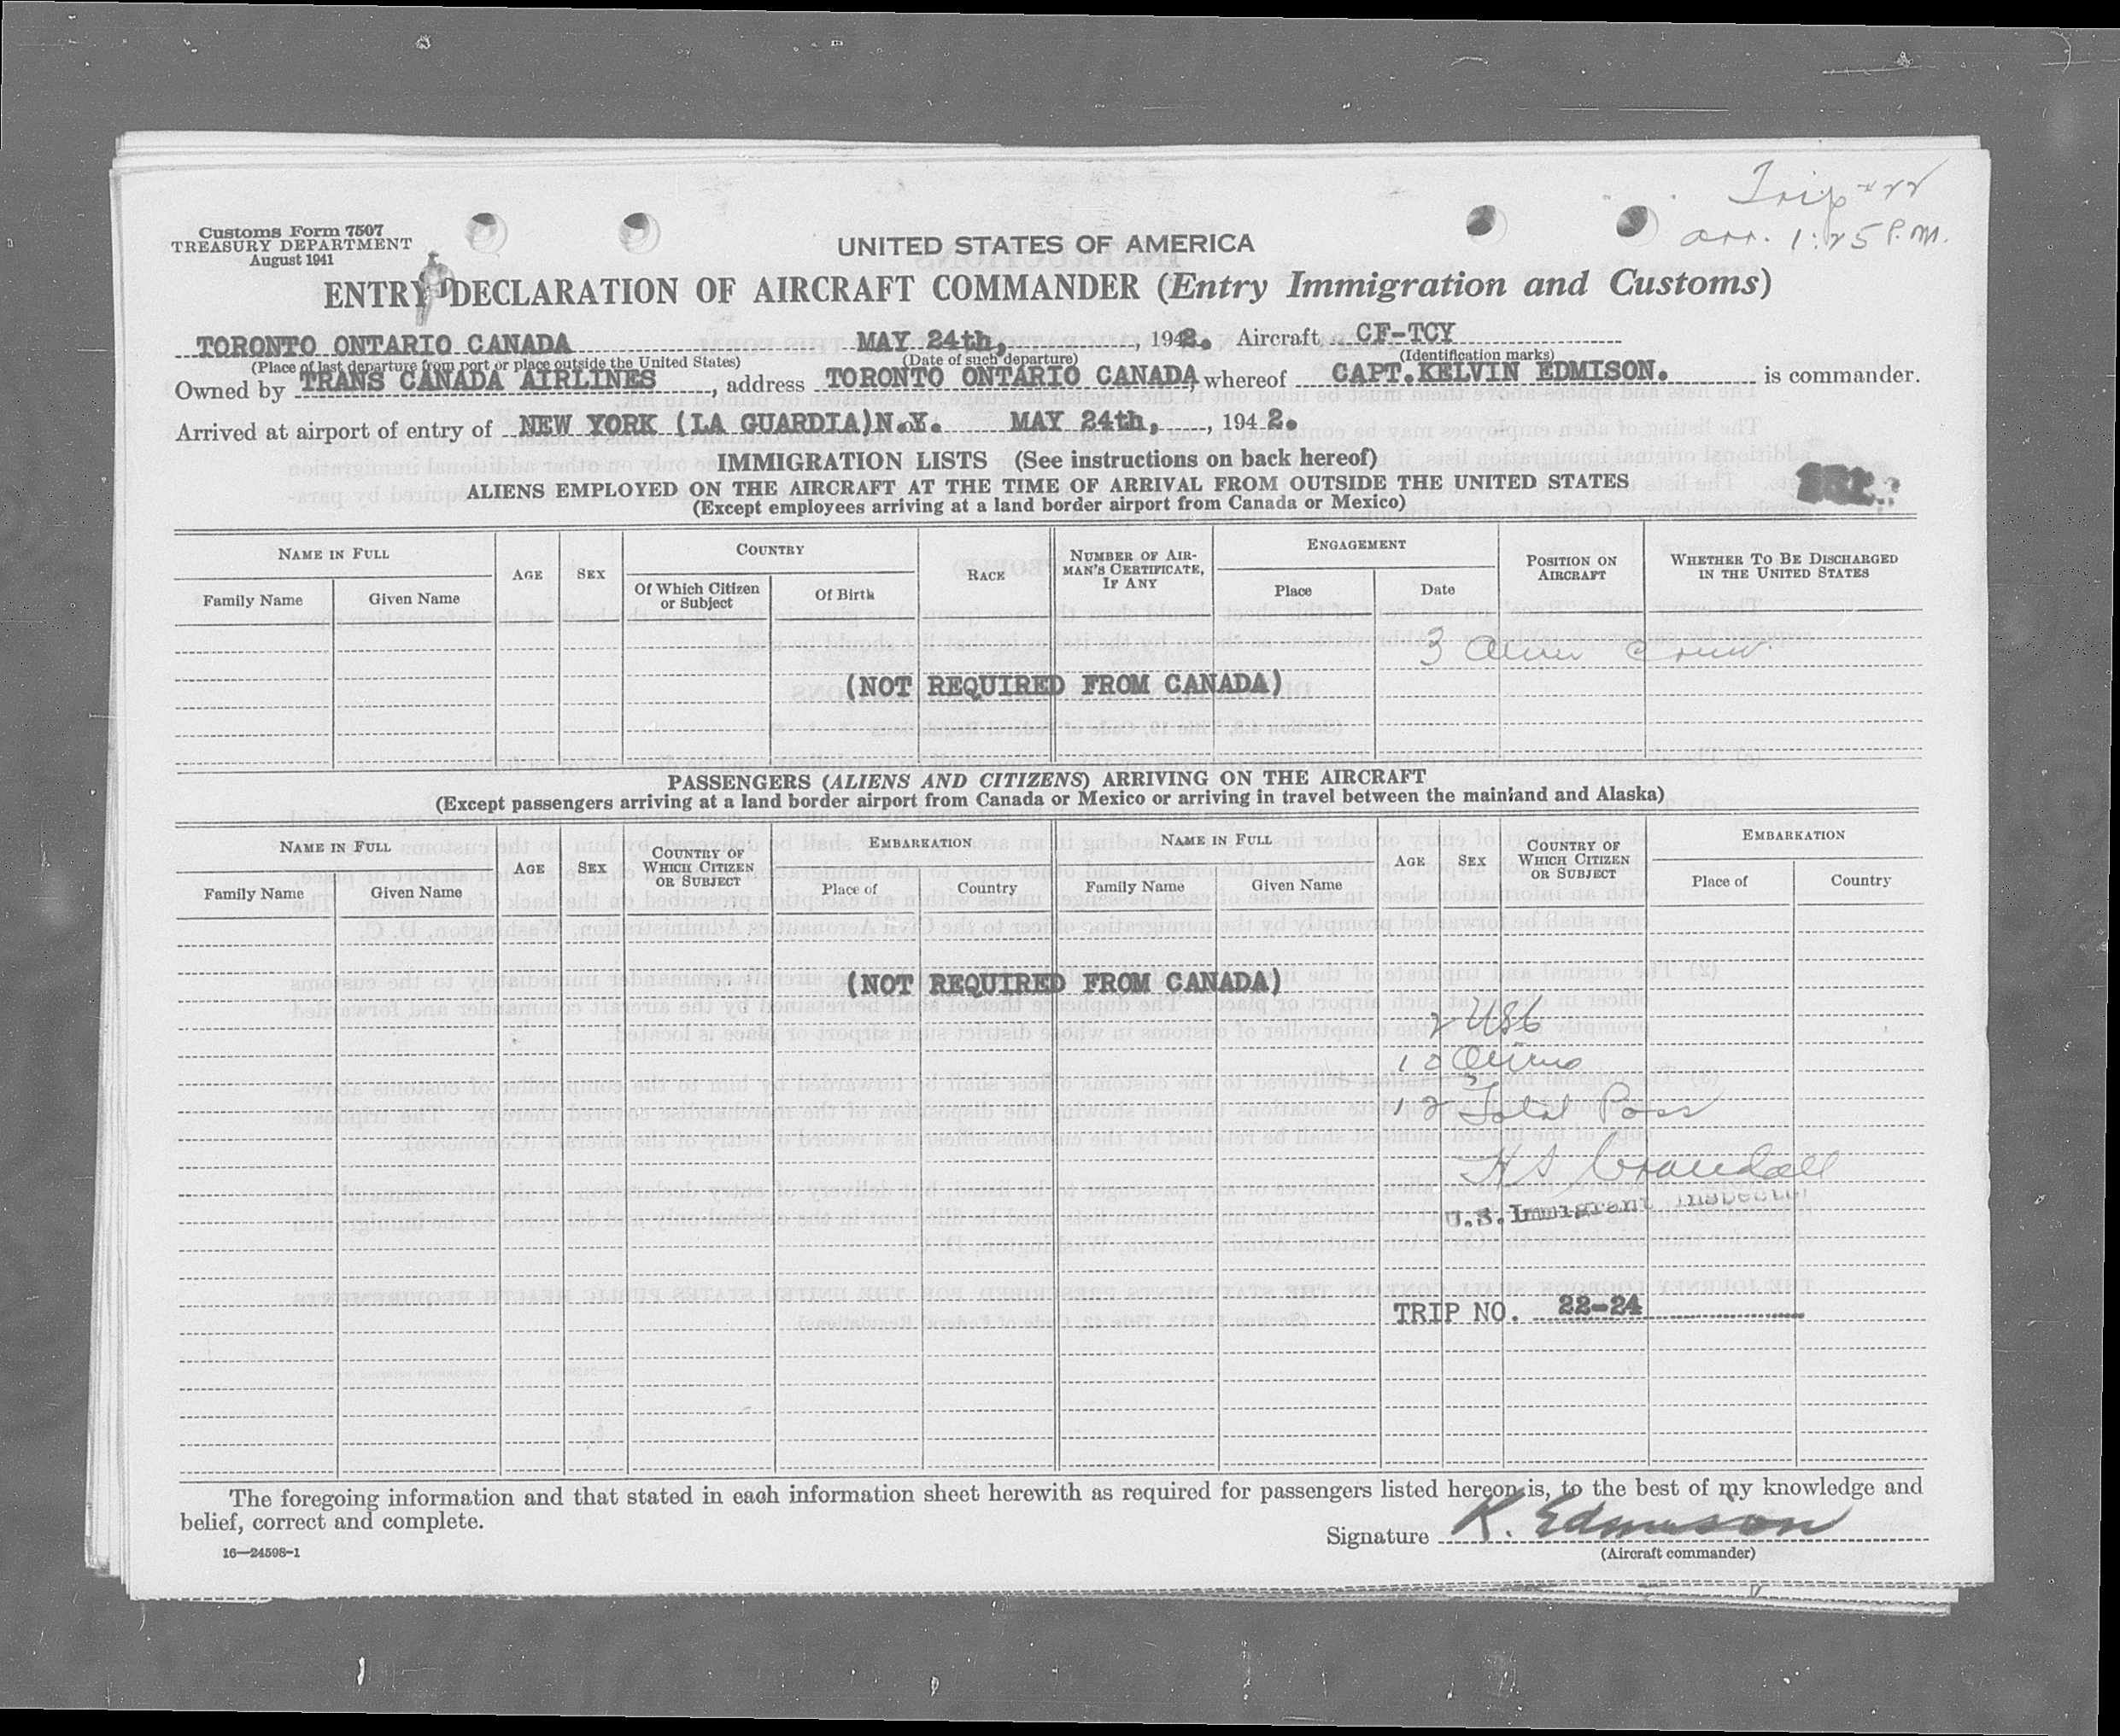 Trip #22
arr. 1:25 P.M.
Customs Form 7507
TREASURY DEPARTMENT
August 1941
UNITED STATES OF AMERICA
ENTRY DECLARATION OF AIRCRAFT COMMANDER (Entry Immigration and Customs)
TORONTO ONTARIO CANADA MAY 24th, , 1942. Aircraft CF-TCY
(Place of last departure from port or place outside the United States) (Date of such departure) (Identification marks)
Owned by TRANS CANADA AIRLINES , address TORONTO ONTARIO CANADA whereof CAPT.KELVIN EDMISON. is commander.
Arrived at airport of entry of NEW YORK (LA GUARDIA)N.Y. MAY 24th, , 1942.
IMMIGRATION LISTS (See instructions on back hereof)
ALIENS EMPLOYED ON THE AIRCRAFT AT THE TIME OF ARRIVAL FROM OUTSIDE THE UNITED STATES
(Except employees arriving at a land border airport from Canada or Mexico)
NAME IN FULL AGE SEX COUNTRY RACE NUMBER OF AIRMAN'S CERTIFICATE, IF ANY ENGAGEMENT POSITION ON AIRCRAFT WHETHER TO BE DISCHARGED IN THE UNITED STATES
Family Name Given Name Of Which Citizen or Subject Of Birth Place Date
3 Alien Crew
(NOT REQUIRED FROM CANADA)
PASSENGERS (ALIENS AND CITIZENS) ARRIVING ON THE AIRCRAFT
(Except passengers arriving at a land border airport from Canada or Mexico or arriving in travel between the mainland and Alaska)
NAME IN FULL AGE SEX COUNTRY OF WHICH CITIZEN OR SUBJECT EMBARKATION NAME IN FULL AGE SEX COUNTRY OF WHICH CITIZEN OR SUBJECT EMBARKATION
Family Name Given Name Place of Country Family Name Given Name Place of Country
(NOT REQUIRED FROM CANADA)
2 USC
10 Aliens
12 Total Pass
H S Crandall
U.S. Immigrant Inspector
TRIP NO. 22-24
The foregoing information and that stated in each information sheet herewith as required for passengers listed hereon is, to the best of my knowledge and
belief, correct and complete.
Signature K. Edmison
16—24598-1 (Aircraft commander)